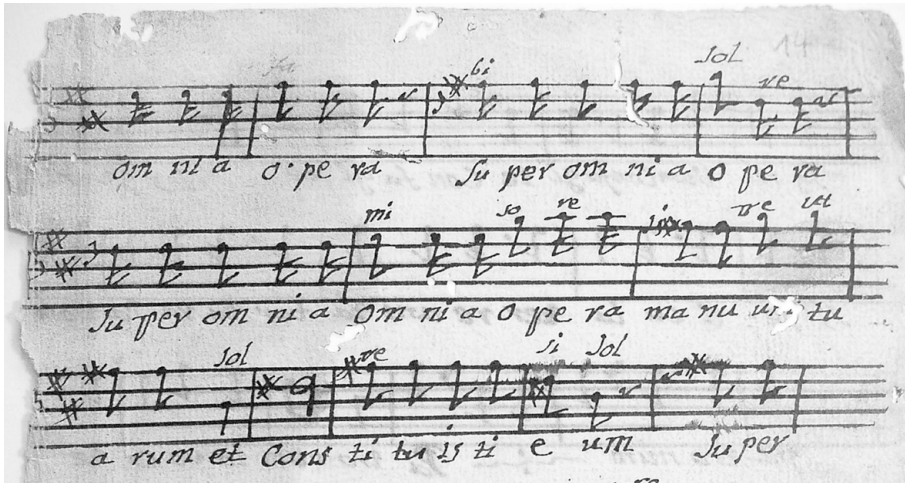 bi Sol re
om ni a o pe ra Su per om ni a o pe ra
mi so re si re ut
Su per om ni a om ni a o pe ra ma nu um tu
Sol re si Sol
a rum et Cons ti tu is ti e um Su per